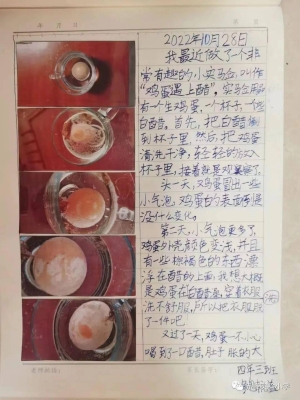 2022年10月28日
我最近做了一个非
常有趣的小实验，叫作
“鸡蛋遇上醋”。实验用品
有一个生鸡蛋，一个杯子，一个些
白醋。首先，把白醋倒
到杯子里，然后，把鸡蛋
清洗干净，轻轻的放入
杯子里，接着就是观察了。
头一天，鸡蛋冒出一些
小气泡，鸡蛋的表面
没什么变化。
第二天，小气泡更多了，
鸡蛋外壳颜色变浅，并且
有一些棕褐色的东西漂
浮在醋的上面，我想大概
是鸡蛋在白醋里，穿着衣服
洗不舒服，所以把衣服脱
了一件吧！
又过了一天，鸡蛋一不小心
喝到了一口醋，肚子胀的大
四年三班